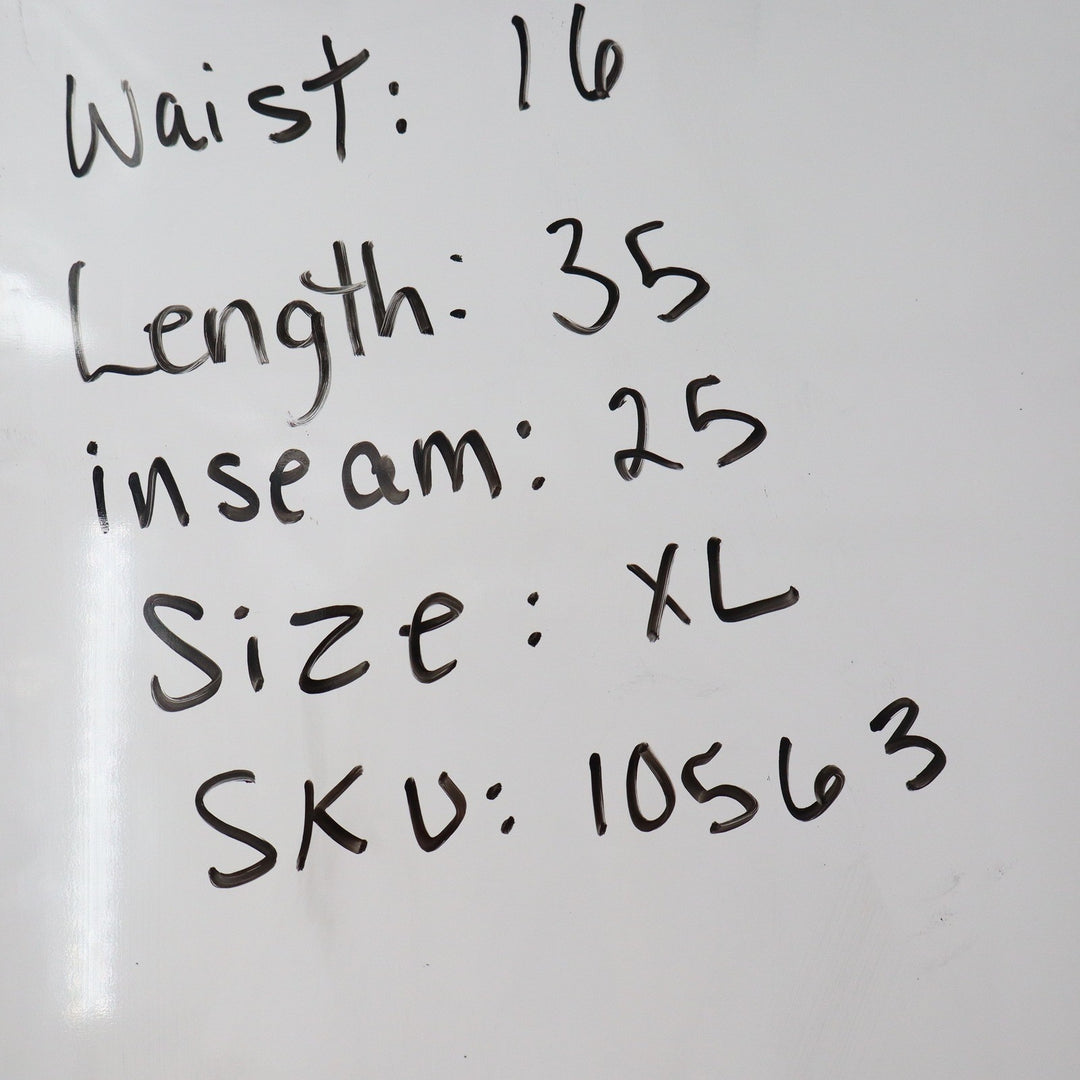 Waist: 16
Length: 35
inseam: 25
Size: XL
SKU: 10563